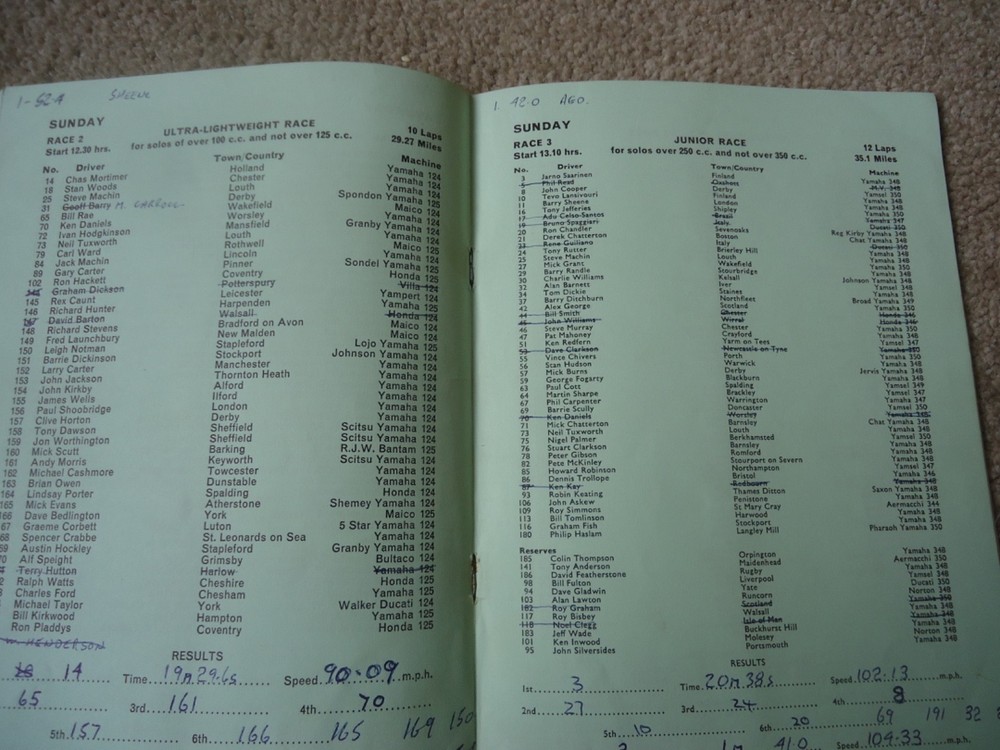 1-52.4 SHEENE
SUNDAY
RACE 2
Start 12.30 hrs.
ULTRA-LIGHTWEIGHT RACE
for solos of over 100 c.c. and not over 125 c.c.
10 Laps
29.27 Miles
No. Driver Town/Country Machine
14 Chas Mortimer Holland Yamaha 124
18 Stan Woods Chester Yamaha 124
25 Steve Machin Louth Yamaha 124
31 Geoff Barry M. CARROLL Derby Spondon Yamaha 124
65 Bill Rae Wakefield Maico 124
70 Ken Daniels Worsley Yamaha 124
72 Ivan Hodgkinson Mansfield Granby Yamaha 124
73 Neil Tuxworth Louth Yamaha 124
79 Carl Ward Rothwell Maico 125
84 Jack Machin Lincoln Yamaha 124
89 Gary Carter Pinner Sondel Yamaha 125
102 Ron Hackett Coventry Honda 125
Graham Dickson Potterspury Villa 124
145 Rex Caunt Leicester Yampert 124
146 Richard Hunter Harpenden Yamaha 125
147 David Barton Walsall Honda 124
148 Richard Stevens Bradford on Avon Maico 124
149 Fred Launchbury New Malden Maico 124
150 Leigh Notman Stapleford Lojo Yamaha 125
151 Barrie Dickinson Stockport Yamaha 124
152 Larry Carter Manchester Johnson Yamaha 124
153 John Jackson Thornton Heath Yamaha 124
154 John Kirkby Alford Yamaha 124
155 James Wells Ilford Yamaha 124
156 Paul Shoobridge London Yamaha 124
157 Clive Horton Derby Yamaha 124
158 Tony Dawson Sheffield Scitsu Yamaha 124
159 Jon Worthington Sheffield Scitsu Yamaha 124
160 Mick Scutt Barking R.J.W. Bantam 125
161 Andy Morris Keyworth Scitsu Yamaha 124
162 Michael Cashmore Towcester Yamaha 124
163 Brian Owen Dunstable Yamaha 124
164 Lindsay Porter Spalding Honda 124
165 Mick Evans Atherstone Shemey Yamaha 124
166 Dave Bedlington York Maico 125
67 Graeme Corbett Luton 5 Star Yamaha 124
68 Spencer Crabbe St. Leonards on Sea Yamaha 124
69 Austin Hockley Stapleford Granby Yamaha 124
0 Alf Speight Grimsby Bultaco 124
Terry Hutton Harlow Yamaha 124
2 Ralph Watts Cheshire Honda 125
Charles Ford Chesham Yamaha 125
Michael Taylor York Walker Ducati 124
Bill Kirkwood Hampton Yamaha 125
Ron Pladdys Coventry Honda 125
W. HENDERSON
RESULTS
14 Time 19m 29.6s Speed 90.09 m.p.h.
65 3rd 161 4th 70
5th 157 6th 166 165 169 150
1. 42.0 AGO.
SUNDAY
RACE 3
Start 13.10 hrs.
JUNIOR RACE
for solos over 250 c.c. and not over 350 c.c.
12 Laps
35.1 Miles
No. Driver Town/Country Machine
3 Jarno Saarinen Finland Yamaha 348
5 Phil Read Oxshott M.V. 348
8 John Cooper Derby Yamsel 350
10 Tevo Lansivouri Finland Yamaha 348
11 Barry Sheene London Yamaha 348
16 Tony Jefferies Shipley Yamaha 350
17 Adu Celso-Santos Brazil Yamaha 347
19 Bruno Spaggiari Italy Ducati 350
20 Ron Chandler Sevenoaks Reg Kirby Yamaha 348
21 Derek Chatterton Boston Chat Yamaha 348
23 Rene Guiliano Italy Ducati 350
24 Tony Rutter Brierley Hill Yamaha 348
25 Steve Machin Louth Yamaha 348
27 Mick Grant Wakefield Yamaha 350
29 Barry Randle Stourbridge Yamaha 348
30 Charlie Williams Kelsall Johnson Yamaha 348
32 Alan Barnett Iver Yamsel 348
34 Tom Dickie Staines Yamaha 348
37 Barry Ditchburn Northfleet Broad Yamaha 349
42 Alex George Scotland Yamaha 348
44 Bill Smith Chester Honda 346
45 John Williams Wirral Honda 346
46 Steve Murray Chester Yamaha 350
47 Pat Mahoney Crayford Yamaha 348
51 Ken Redfern Yarm on Tees Yamsel 347
53 Dave Clarkson Newcastle on Tyne Yamaha 350
55 Vince Chivers Porth Yamaha 348
56 Stan Hudson Warwick Yamaha 348
57 Mick Burns Derby Jervis Yamaha 348
59 George Fogarty Blackburn Yamaha 348
63 Paul Cott Spalding Yamsel 349
64 Martin Sharpe Brackley Yamaha 347
67 Phil Carpenter Warrington Yamsel 350
69 Barrie Scully Doncaster
70 Ken Daniels Worsley
71 Mick Chatterton Barnsley Chat Yamaha 348
73 Neil Tuxworth Louth Yamaha 348
75 Nigel Palmer Berkhamsted Yamsel 350
76 Stuart Clarkson Barnsley Yamaha 348
78 Peter Gibson Romford Yamaha 348
82 Pete McKinley Stourport on Severn Yamaha 348
85 Howard Robinson Northampton Yamsel 347
86 Dennis Trollope Bristol Yamaha 346
87 Ken Kay Redbourn Yamaha 348
93 Robin Keating Thames Ditton Saxon Yamaha 348
106 John Askew Penistone Aermacchi 344
109 Roy Simmons St Mary Cray Yamaha 348
113 Bill Tomlinson Harwood Yamaha 348
116 Graham Fish Stockport Yamaha 348
180 Philip Haslam Langley Mill Pharaoh Yamaha 350
Reserves
185 Colin Thompson Orpington Yamaha 348
141 Tony Anderson Maidenhead Aermacchi 350
186 David Featherstone Rugby Yamaha 348
98 Bill Fulton Liverpool Yamsel 348
94 Dave Gladwin Yate Ducati 348
103 Alan Lawton Runcorn Norton 348
182 Roy Graham Scotland Yamaha 350
117 Roy Bisbey Walsall Yamaha 348
118 Noel Clegg Isle of Man Yamaha 348
183 Jeff Wade Buckhurst Hill Norton 348
101 Ken Inwood Molesey Yamaha 348
95 John Silversides Portsmouth
RESULTS
1st 3 Time 20m 38s Speed 102.13 m.p.h.
2nd 27 3rd 24 4th 8
5th 10 6th 20 69 191 32
1m 41.0 Speed 104.33 m.p.h.